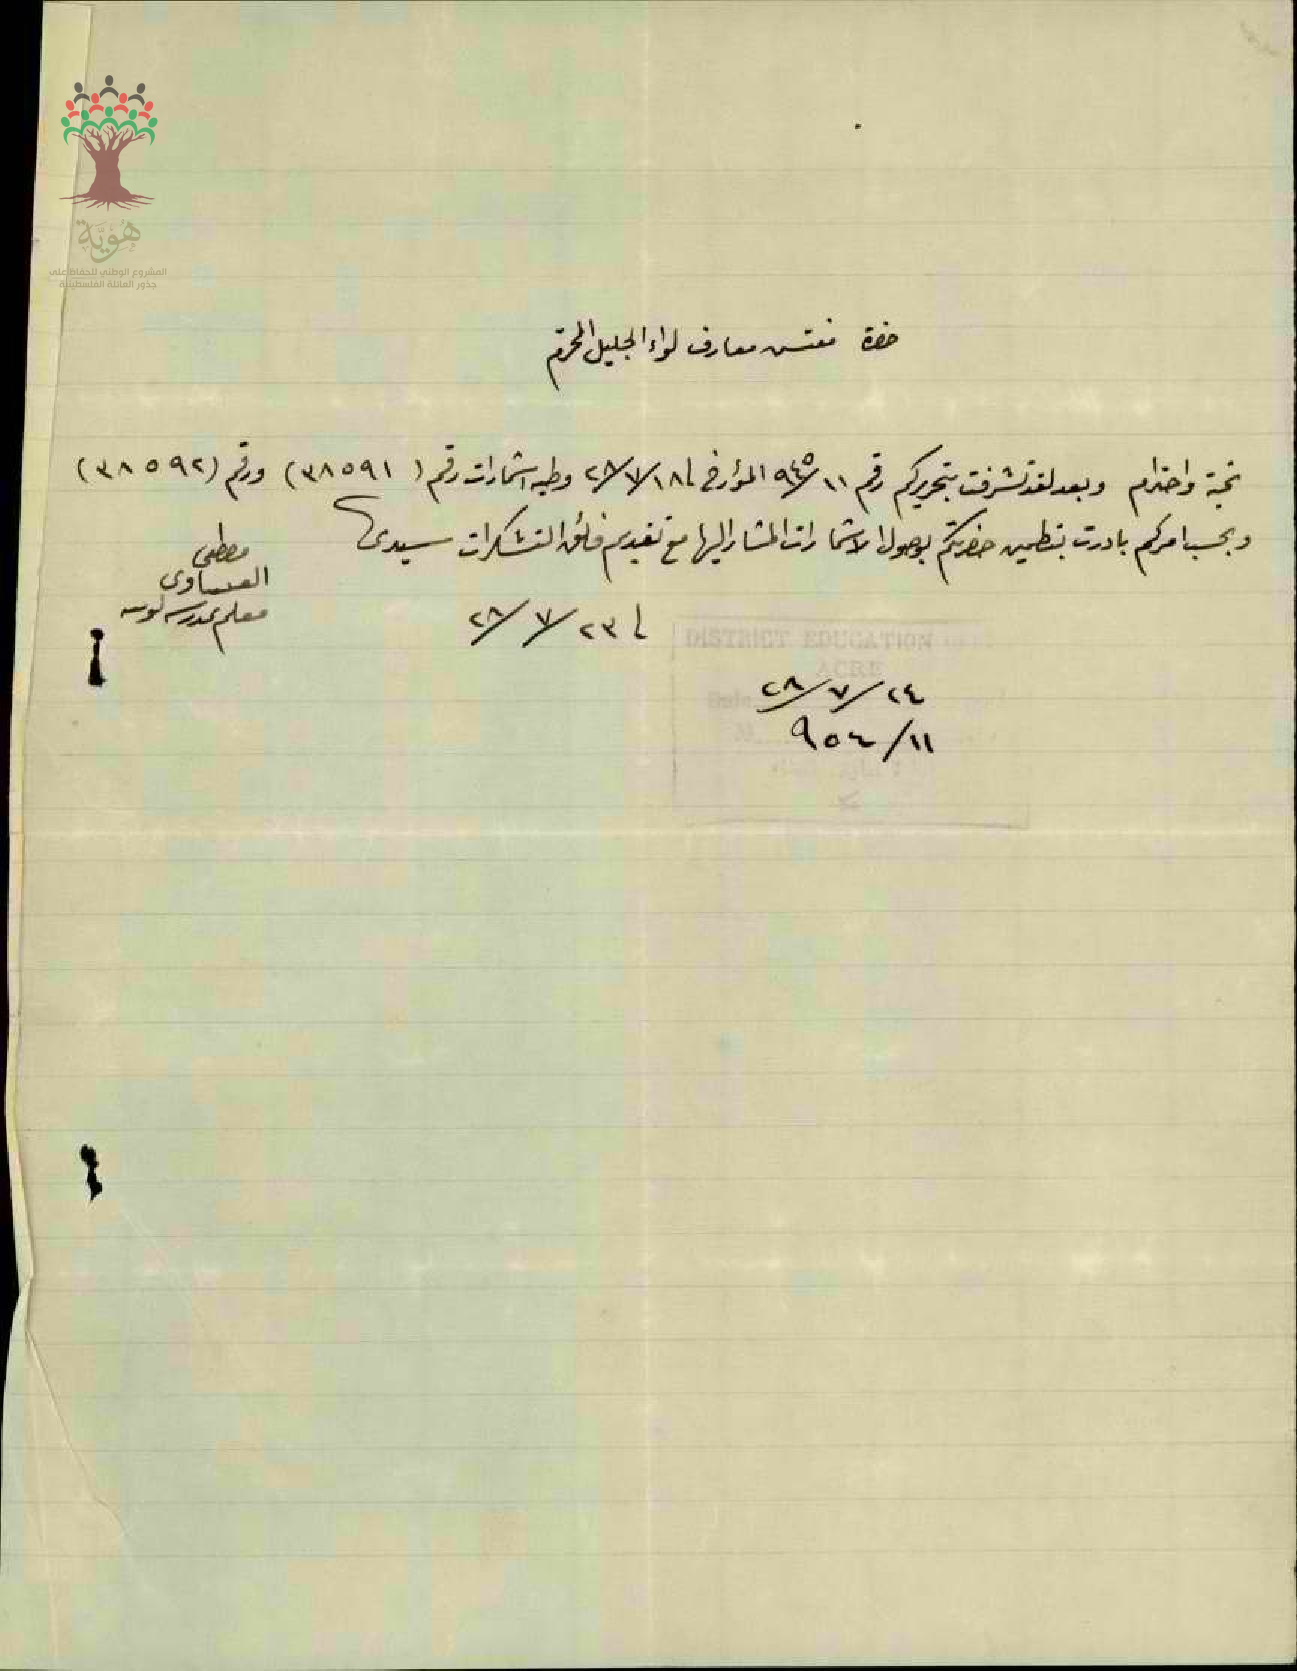 هُوِيَّة
المشروع الوطني للحفاظ على
جذور العائلة الفلسطينية
حضرة مفتش معارف لواء الجليل المحترم
تحية واحترام وبعد لقد تشرفت بتحريركم رقم ١١/٩٤٥ المؤرخ في ١٨/٧/٢٨ وطيه استمارات رقم (٣٨٥٩١) ورقم (٣٨٥٩٢)
وبحسب امركم بادرت بتطمين حضرتكم بوصول الاستمارات المشار اليها مع تقديم فائق التشكرات سيدي
مصطفى
العيساوي
معلم مدرسة
في ٢٣/٧/٢٨
DISTRICT EDUCATION
ACRE
٢٤/٧/٢٨
١١/٩٥٤